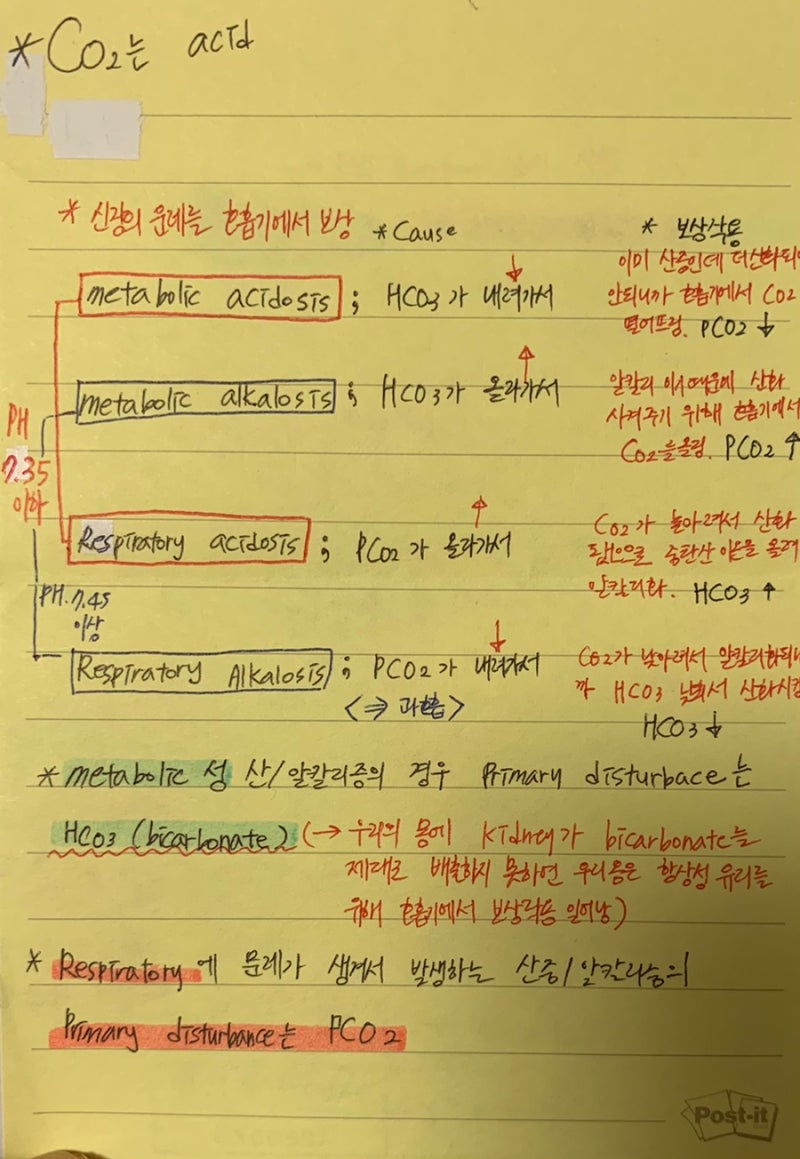 *CO2는 acid
* 신장의 문제를 호흡기에서 보상 *Cause * 보상작용
metabolic acidosis ; HCO3가 내려가서 ↓
이미 산증인데 더산화되면
안되니까 호흡기에서 CO2
떨어뜨림. PCO2 ↓
metabolic alkalosis ; HCO3가 올라가서 ↑
알칼리 이기때문에 산화
시켜주기 위해 호흡기에서
CO2를올림. PCO2 ↑
PH
7.35
이하
Respiratory acidosis ; PCO2가 올라가서 ↑
CO2가 높아져서 산화
됨으로 중탄산 이온을 올려
알칼리화. HCO3 ↑
PH.7.45
이상
Respiratory Alkalosis ; PCO2가 내려가서 ↓
<⇒ 과호흡>
CO2가 낮아져서 알칼리화되니
까 HCO3 낮춰서 산화시킴
HCO3 ↓
* metabolic 성 산/알칼리증의 경우 Primary disturbace는
HCO3 (bicarbonate) (→ 우리의 몸에 kidney가 bicarbonate를
제대로 배출하지 못하면 우리몸은 항상성 유지를
위해 호흡기에서 보상작용 일어남)
* Respiratory에 문제가 생겨서 발생하는 산증/알칼리증의
Primary disturbance는 PCO2
Post-it